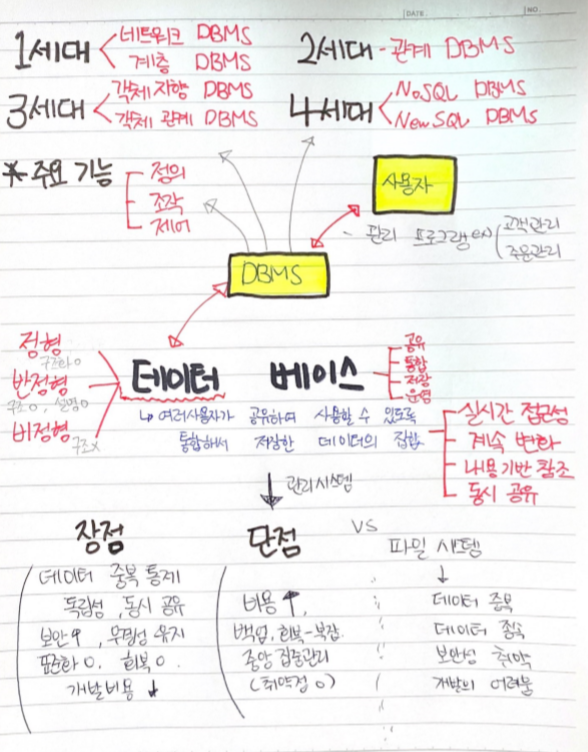 DATE. NO.
1세대 네트워크 DBMS
계층 DBMS
2세대 - 관계 DBMS
3세대 객체지향 DBMS
객체 관계 DBMS
4세대 NoSQL DBMS
NewSQL DBMS
* 주요 기능
정의
조작
제어
사용자
- 관리 프로그램 ex) 고객관리
주문관리
DBMS
정형
구조화 o
반정형
구조 o, 설명 o
비정형
구조 x
데이터 베이스
공유
통합
저장
운영
↳ 여러사용자가 공유하여 사용할 수 있도록
통합해서 저장한 데이터의 집합
실시간 접근성
계속 변화
내용 기반 참조
동시 공유
↓ 관리시스템
장점
데이터 중복 통제
독립성, 동시 공유
보안↑, 무결성 유지
표준화 o, 회복 o.
개발비용 ↓
단점
비용 ↑,
백업, 회복-복잡
중앙 집중관리
(취약점 o)
VS
파일 시스템
↓
데이터 중복
데이터 종속
보안성 취약
개발의 어려움